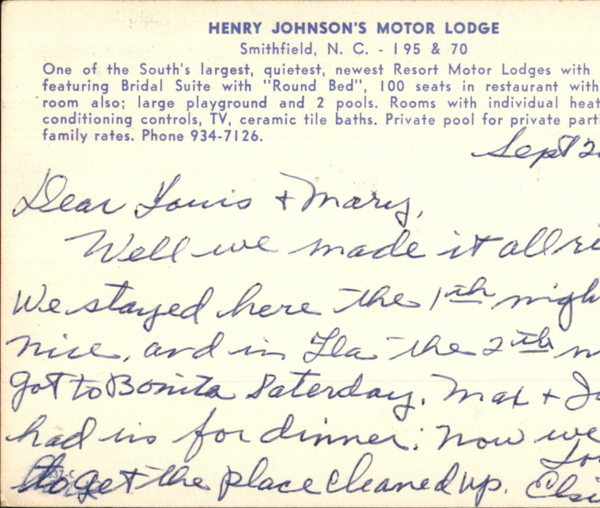 HENRY JOHNSON'S MOTOR LODGE
Smithfield, N. C. - I95 & 70
One of the South's largest, quietest, newest Resort Motor Lodges with
featuring Bridal Suite with "Round Bed", 100 seats in restaurant with
room also; large playground and 2 pools. Rooms with individual heat
conditioning controls, TV, ceramic tile baths. Private pool for private parti
family rates. Phone 934-7126.
Sept 2
Dear Louis + Mary,
Well we made it all ri
We stayed here the 1th nigh
nice, and in Fla the 2th n
got to Bonita Saterday. Max + Jo
had us for dinner. Now we
to get the place cleaned up.